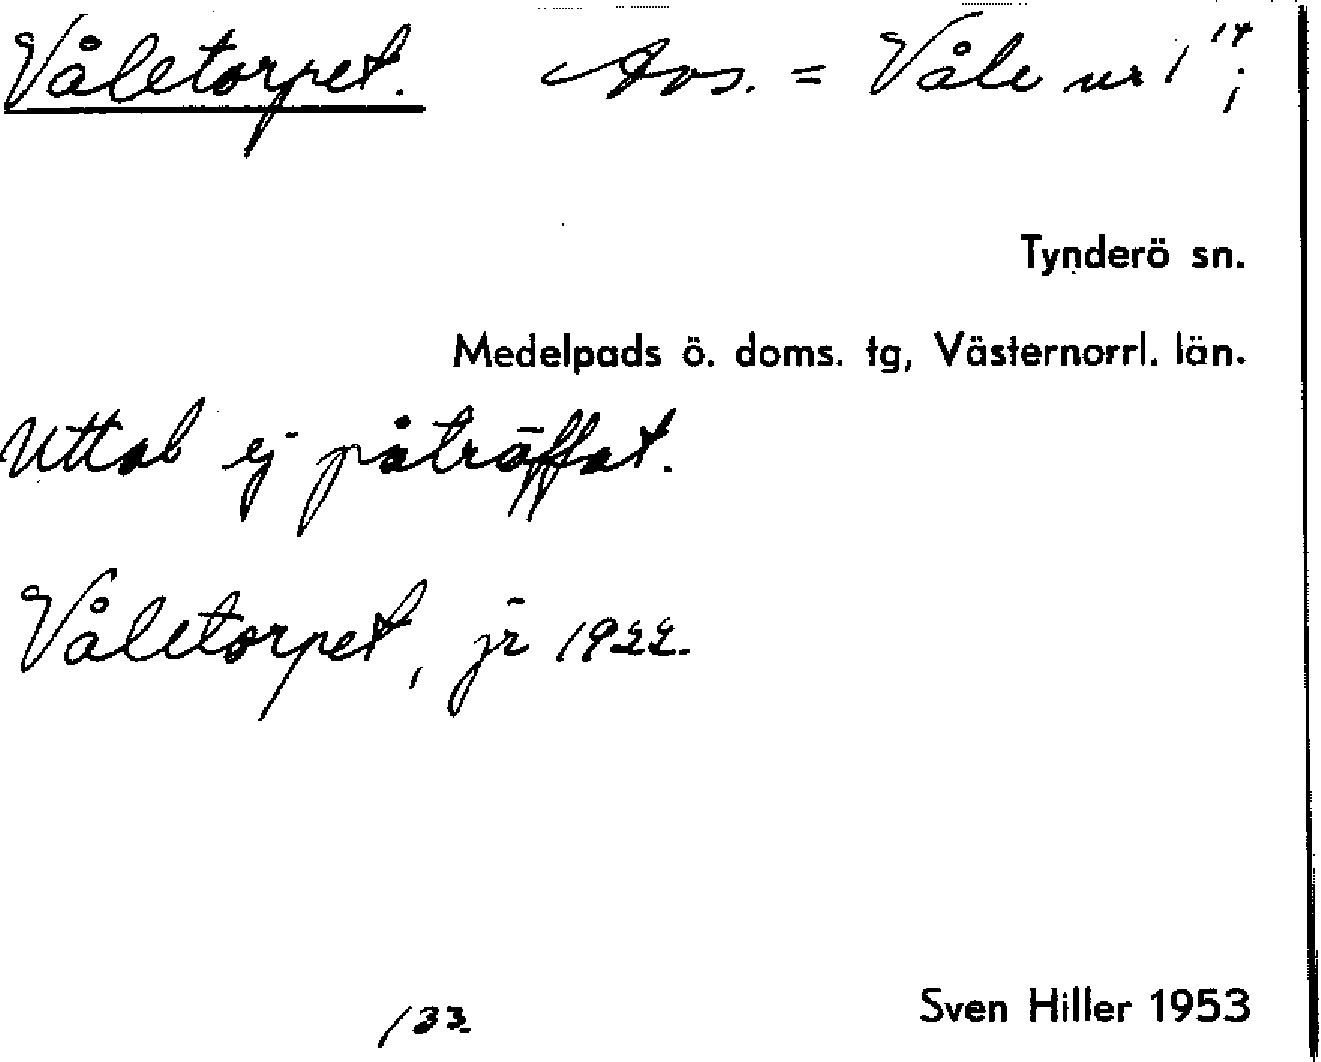 Våletorpet. Avs. = Våle nr 1¹⁴;
Tynderö sn.
Medelpads ö. doms. tg, Västernorrl. län.
Uttal ej påträffat.
Våletorpet, jr 1922.
133
Sven Hiller 1953